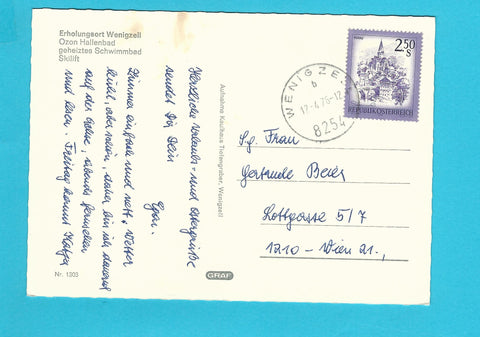 Erholungsort Wenigzell
Ozon Hallenbad
geheiztes Schwimmbad
Skilift
Herzliche Urlaubs- und Ostergrüße
sendet Dir Dein
Zimmer einfach und nett, Wetter
kühl, aber rein, daher bin ich dauernd
auf der Reise, abends fernsehen
und lesen. Freitag kommt
Nr. 1303
Aufnahme Kaufhaus Tiefengraber, Wenigzell
GRAF
WENIGZELL
b
12.4.76-12
8254
2.50
S
REPUBLIK ÖSTERREICH
S.g. Frau
Gertrude Beier
Lottgasse 5/7
1210 - Wien 21.,